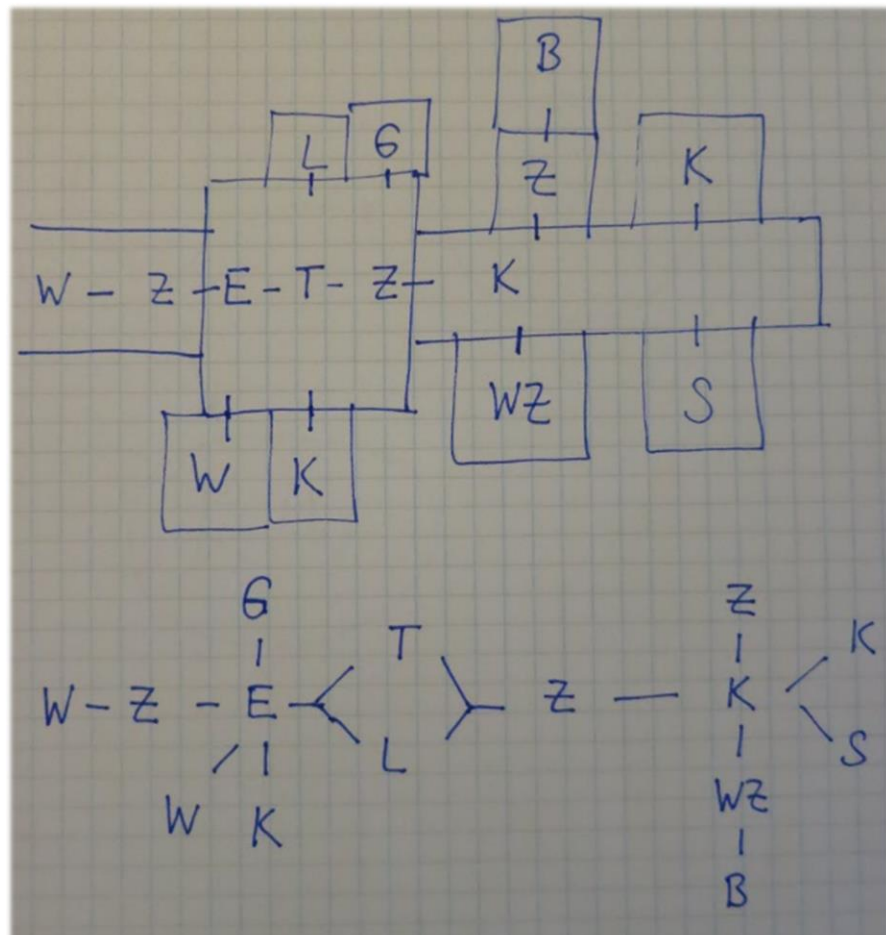 B
L G
Z K
W - Z - E - T - Z - K
W K WZ S
G Z
T K
W - Z - E Z — K
L S
W K WZ
B